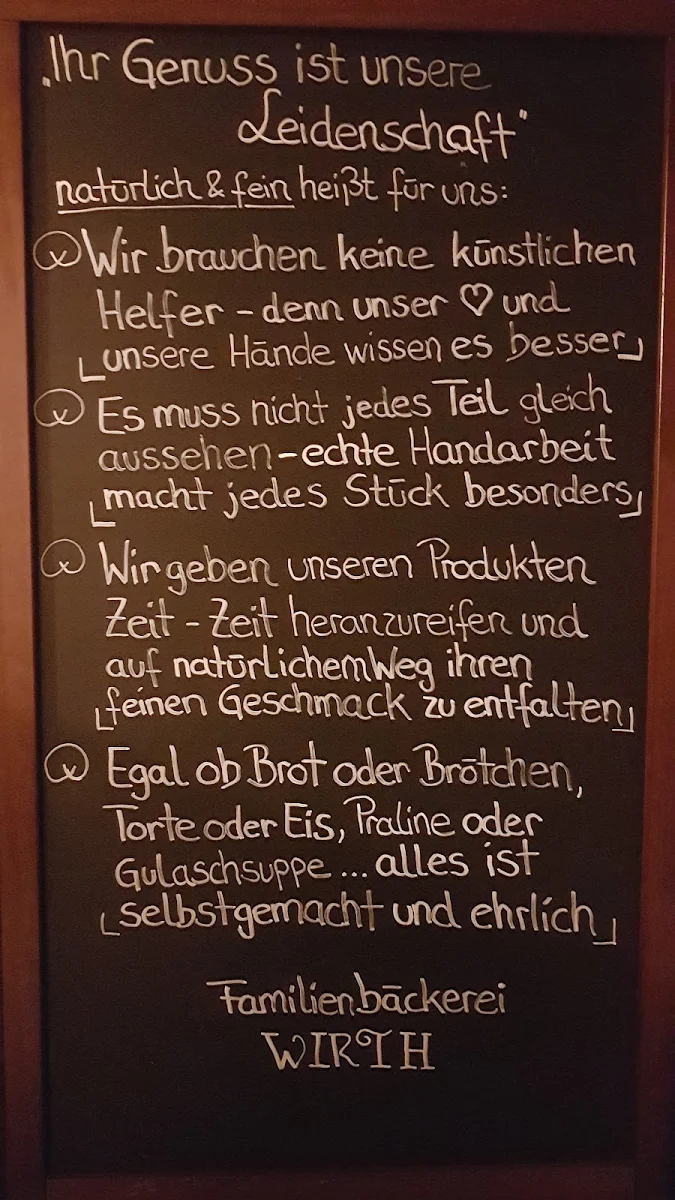 „Ihr Genuss ist unsere
Leidenschaft"
natürlich & fein heißt für uns:
Wir brauchen keine künstlichen
Helfer - denn unser ♡ und
unsere Hände wissen es besser
Es muss nicht jedes Teil gleich
aussehen - echte Handarbeit
macht jedes Stück besonders
Wir geben unseren Produkten
Zeit - Zeit heranzureifen und
auf natürlichem Weg ihren
feinen Geschmack zu entfalten
Egal ob Brot oder Brötchen,
Torte oder Eis, Praline oder
Gulaschsuppe ... alles ist
selbstgemacht und ehrlich
Familienbäckerei
WIRTH